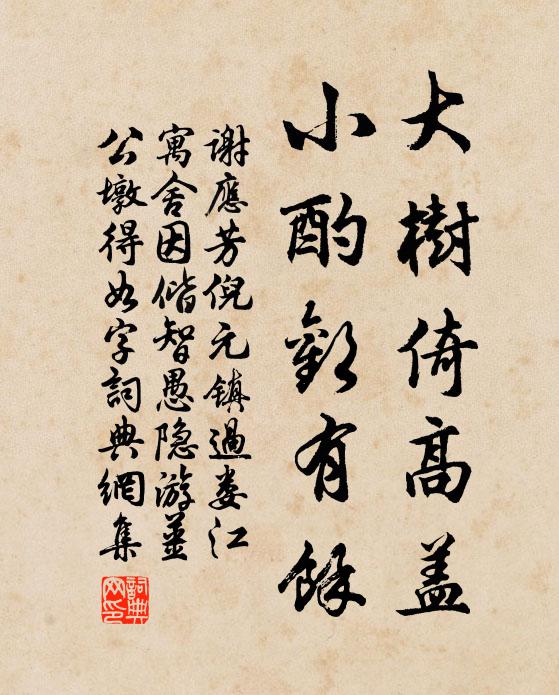 大樹倚高蓋
小酌歡有餘
謝應芳倪元鎮過婁江
寓舍因偕智愚隐游薑
公墩得如字詞典網集
詞典
网印